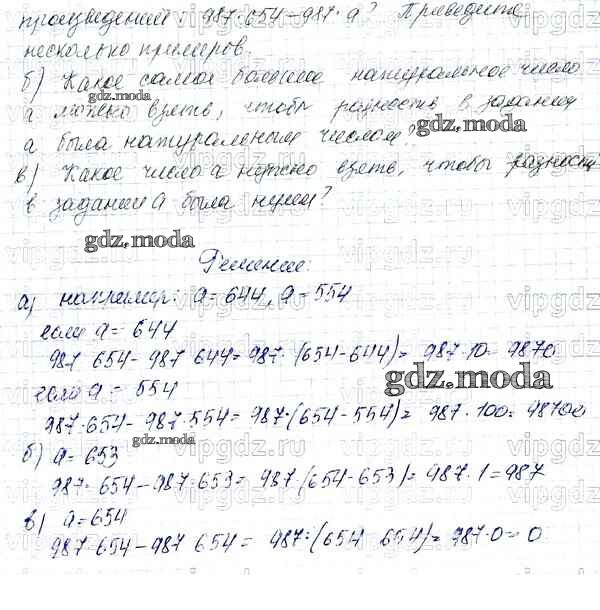 произведений 987·654-987·a? Приведите
несколько примеров.
б) Какое самое большое натуральное число
a можно взять, чтобы разность в задании
а была натуральным числом?
в) Какое число a нужно взять, чтобы разность
в задании а была нулем?
Решение:
а) например: a=644, a=554
если a=644
987 654-987 644=987·(654-644)=987·10=9870
если a=554
987·654-987·554=987·(654-554)=987·100=98700
б) a=653
987·654-987·653=987·(654-653)=987·1=987
в) a=654
987·654-987 654=987·(654 654)=987·0=0
gdz.moda
gdz.moda
gdz.moda
gdz.moda
gdz.moda
vipgdz.ru